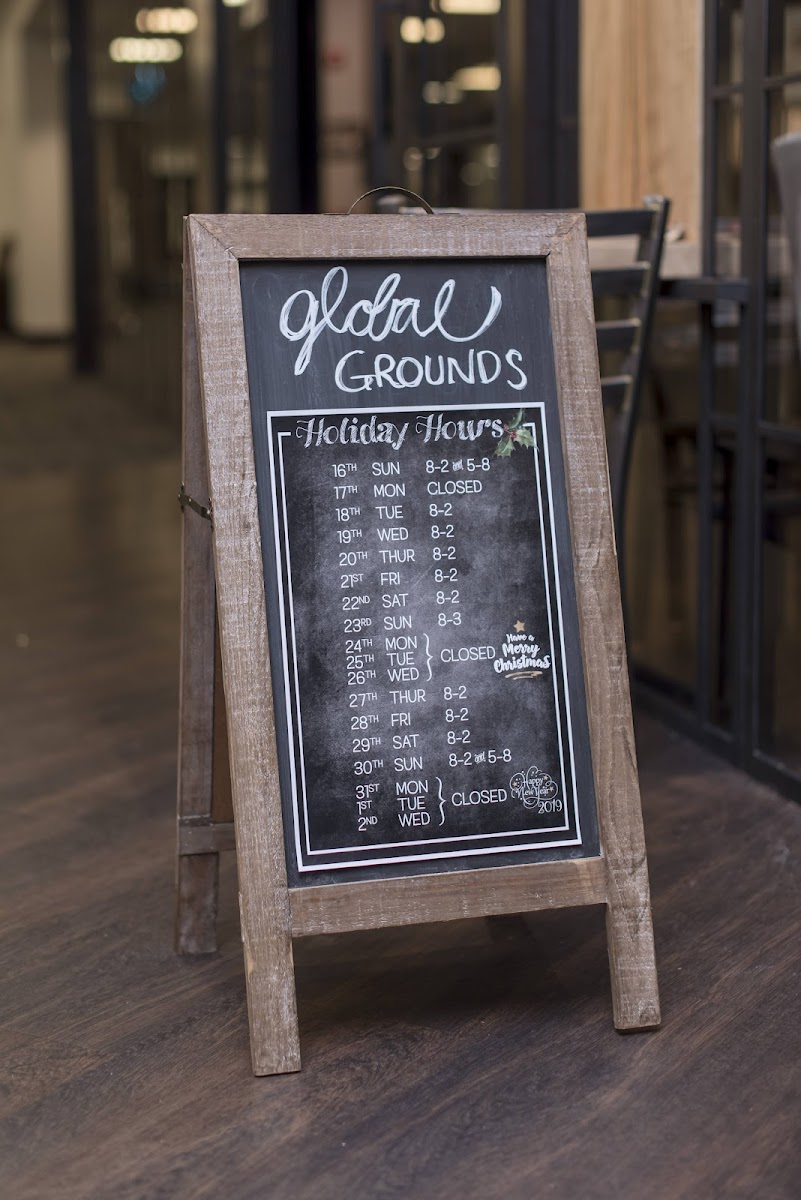 global
GROUNDS
Holiday Hours
16TH SUN 8-2 and 5-8
17TH MON CLOSED
18TH TUE 8-2
19TH WED 8-2
20TH THUR 8-2
21ST FRI 8-2
22ND SAT 8-2
23RD SUN 8-3
24TH MON
25TH TUE CLOSED
26TH WED
Have a
Merry
Christmas
27TH THUR 8-2
28TH FRI 8-2
29TH SAT 8-2
30TH SUN 8-2 and 5-8
31ST MON
1ST TUE CLOSED
2ND WED
Happy
New Year
2019